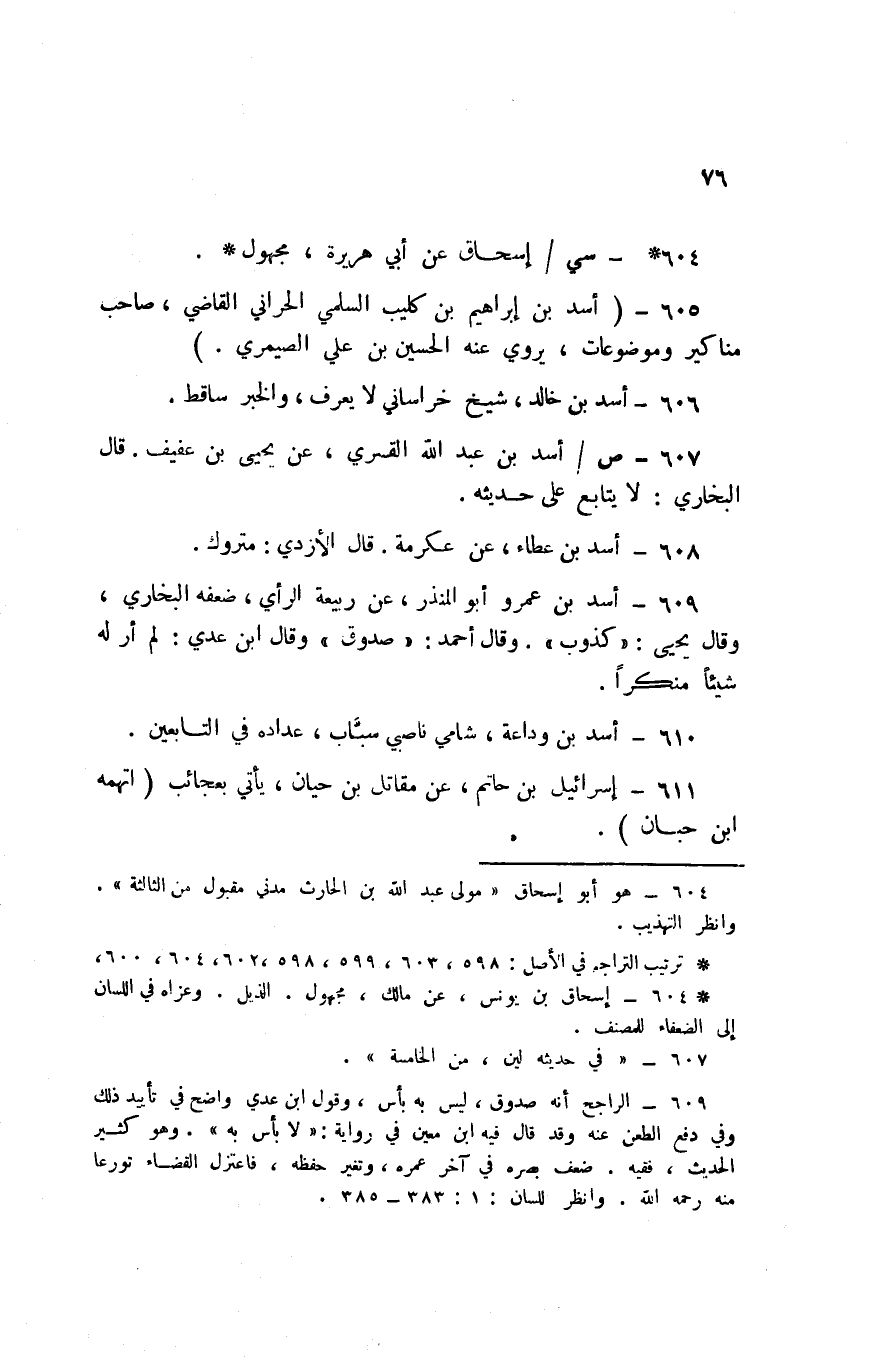 ٧٦
٦٠٤* – سي / إسحاق عن أبي هريرة ، مجهول * .
٦٠٥ – ( أسد بن إبراهيم بن كليب السلمي الحراني القاضي ، صاحب
مناكير وموضوعات ، يروي عنه الحسين بن علي الصيمري . )
٦٠٦ – أسد بن خالد ، شيخ خراساني لا يعرف ، والخبر ساقط .
٦٠٧ – ص / أسد بن عبد الله القسري ، عن يحيى بن عفيف . قال
البخاري : لا يتابع على حديثه .
٦٠٨ – أسد بن عطاء ، عن عكرمة . قال الأزدي : متروك .
٦٠٩ – أسد بن عمرو أبو المنذر ، عن ربيعة الرأي ، ضعفه البخاري ،
وقال يحيى : « كذوب » . وقال أحمد : « صدوق » وقال ابن عدي : لم أر له
شيئاً منكراً .
٦١٠ – أسد بن وداعة ، شامي ناصبي سبَّاب ، عداده في التابعين .
٦١١ – إسرائيل بن حاتم ، عن مقاتل بن حيان ، يأتي بعجائب ( اتهمه
ابن حبان ) .
٦٠٤ – هو أبو إسحاق « مولى عبد الله بن الحارث مدني مقبول من الثالثة » .
وانظر التهذيب .
* ترتيب التراجم في الأصل : ٥٩٨ ، ٦٠٣ ، ٥٩٩ ، ٥٩٨ ،٦٠٢، ٦٠٤ ، ٦٠٠،
* ٦٠٤ – إسحاق بن يونس ، عن مالك ، مجهول . الذيل . وعزاه في اللسان
إلى الضعفاء للمصنف .
٦٠٧ – « في حديثه لين ، من الخامسة » .
٦٠٩ – الراجح أنه صدوق ، ليس به بأس ، وقول ابن عدي واضح في تأييد ذلك
وفي دفع الطعن عنه وقد قال فيه ابن معين في رواية : « لا بأس به » . وهو كثير
الحديث ، فقيه . ضعف بصره في آخر عمره ، وتغير حفظه ، فاعتزل القضاء تورعا
منه رحمه الله . وانظر للسان : ١ : ٣٨٣ – ٣٨٥ .